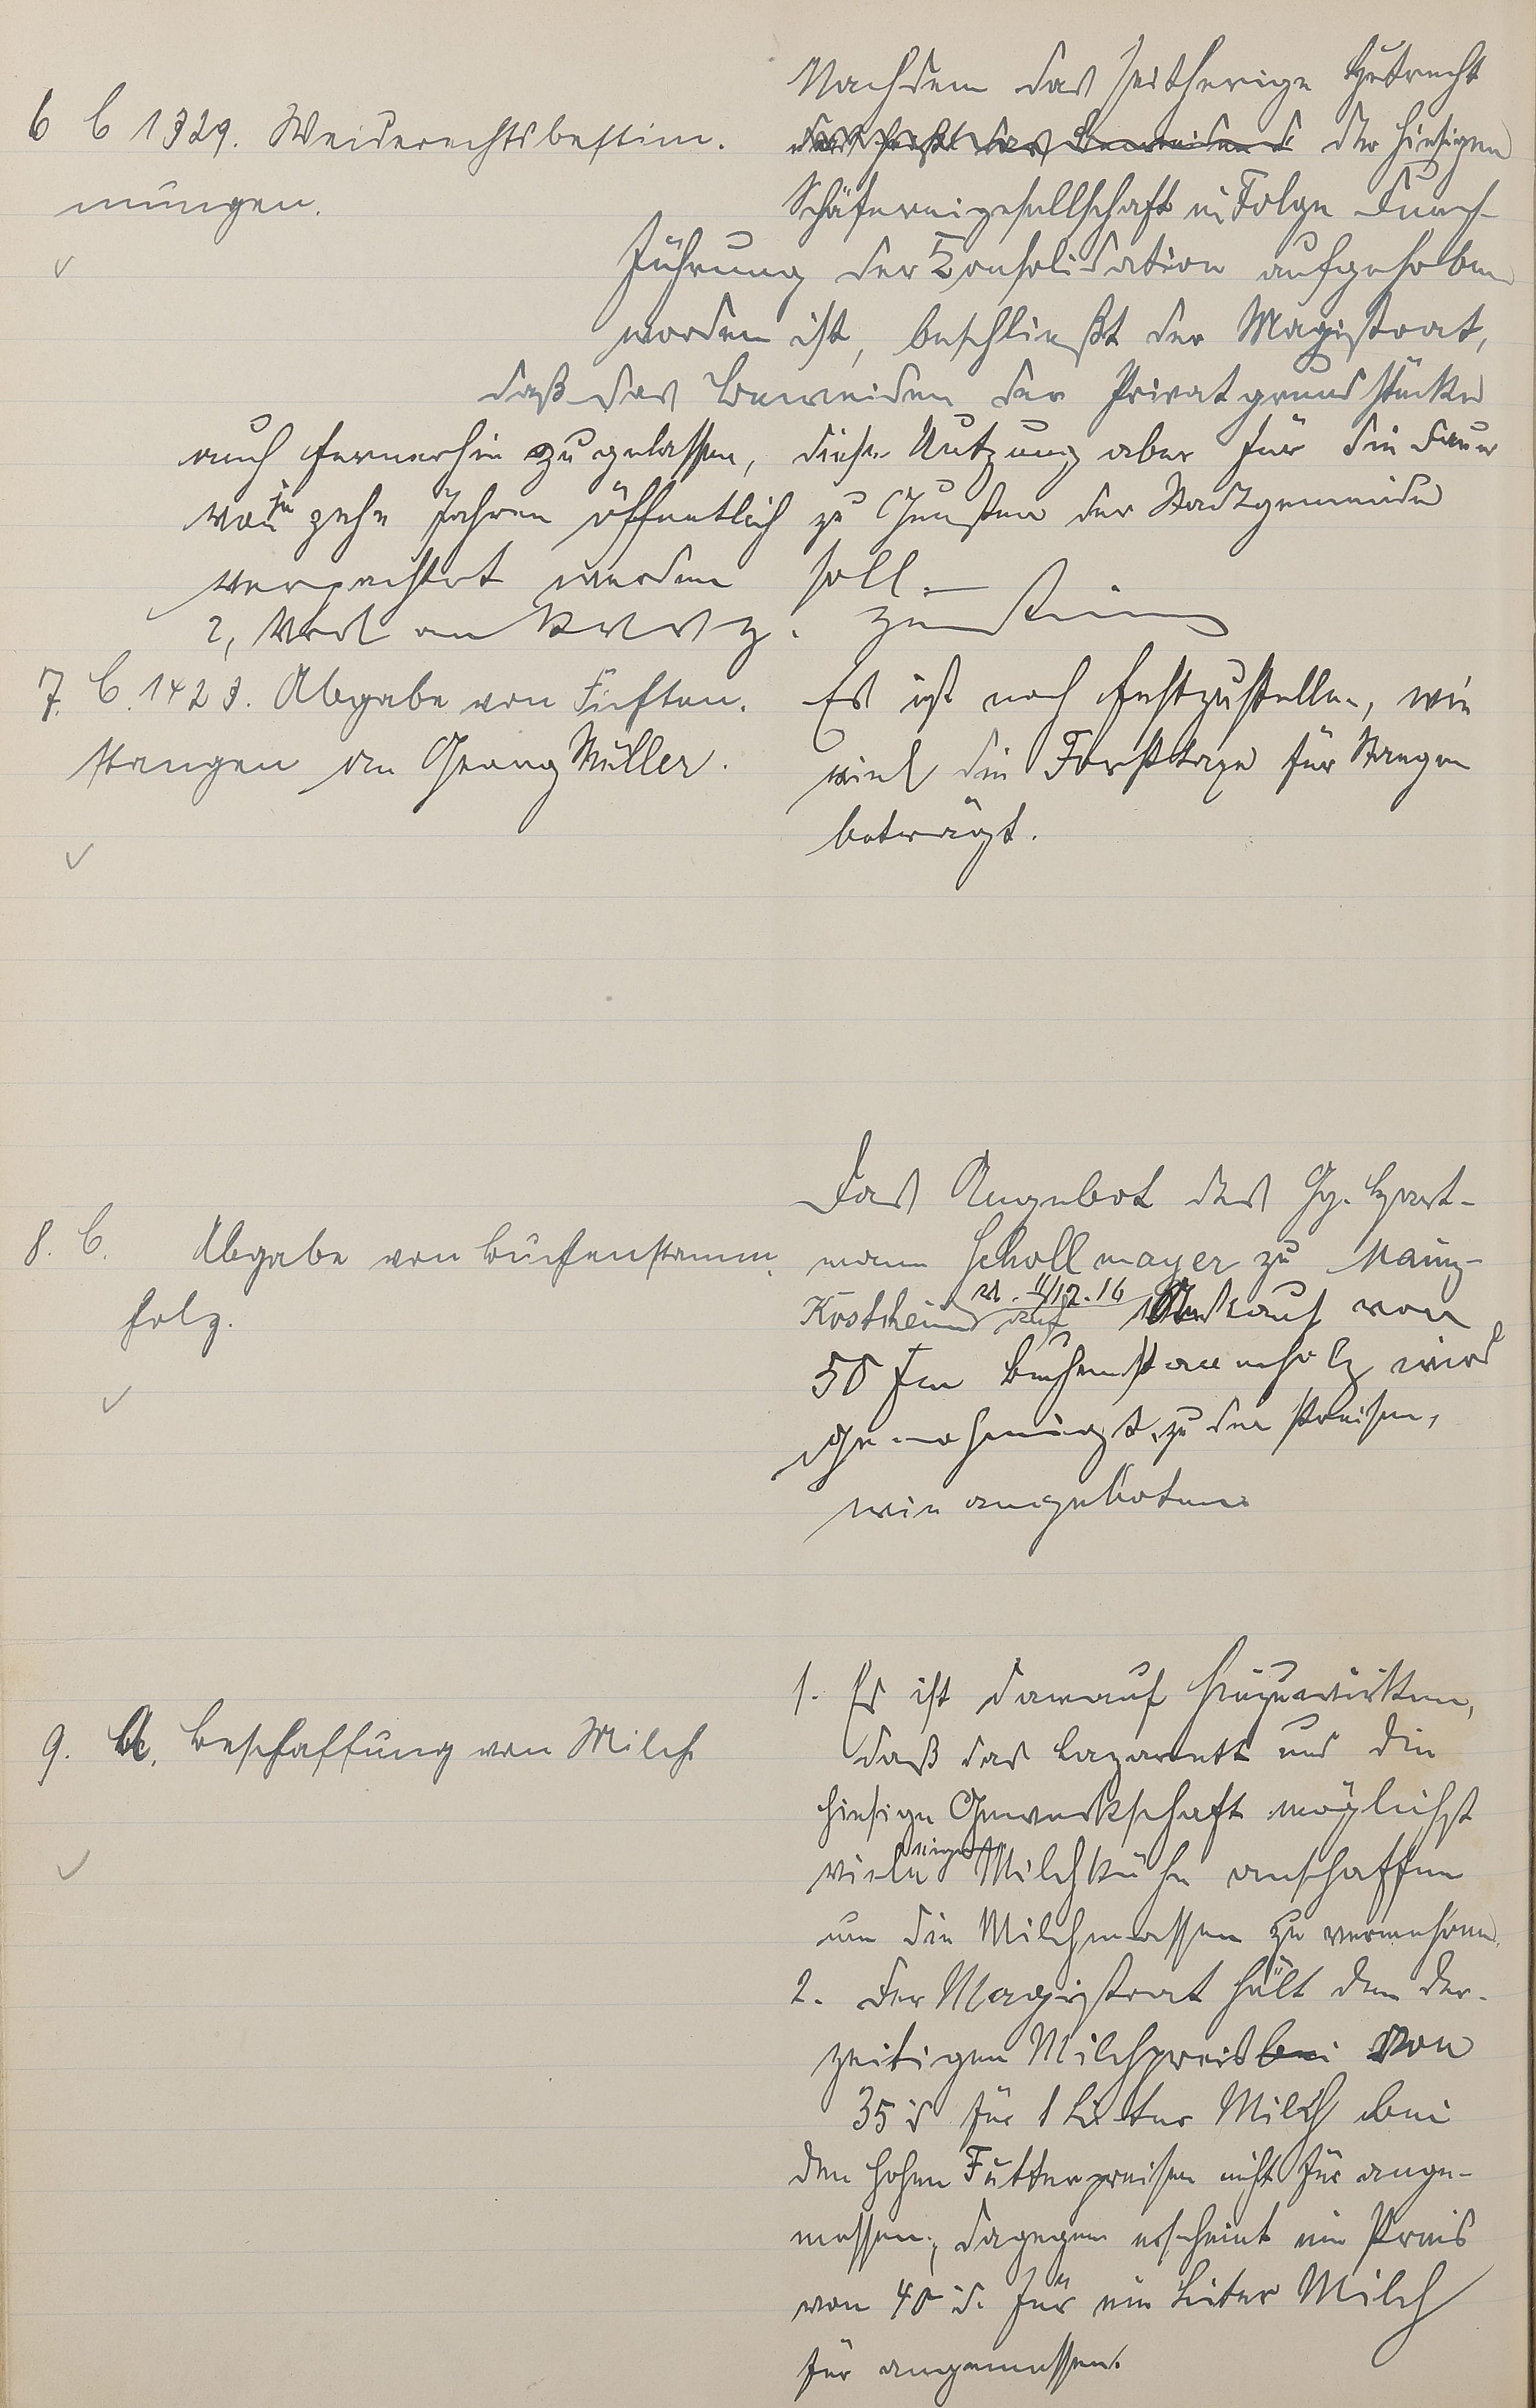 6 C 1329. Weiderechtsbestim-
mungen.
Nachdem das seitherige Hutrecht
das heißt das Beweiden der hiesigen
Schäfereigesellschaft in Folge Durch-
führung der Consolidation aufgehoben
worden ist, beschließt der Magistrat,
daß das Beweiden der Privatgrundstücke
auch fernerhin zugelassen, diese Nutzung aber für die Dauer
von je zehn Jahren öffentlich zu Gunsten der Stadtgemeinde
verpachtet werden soll.
2,
7. C. 1423. Abgabe von Fichten-
stangen an Georg Müller.
Es ist noch festzustellen, wie
viel die Forsttaxe für Stangen
beträgt.
8. C. Abgabe von Buchenstamm-
holz.
Das Angebot des Gg. Hart-
mann Schollmayer zu Mainz-
Kostheim auf Ankauf von
50 fm Buchenstammholz wird
genehmigt, zu den Preisen,
wie angeboten.
9. Beschaffung von Milch
1. Es ist darauf hinzuwirken,
daß das Lazarett und die
hiesige Gewerkschaft möglichst
viele eigene Milchkühe anschaffen
um die Milchmassen zu vermehren.
2. Der Magistrat hält den der-
zeitigen Milchpreis bei von
35 d für 1 Liter Milch bei
den hohen Futterpreisen nicht für ange-
messen; dagegen erscheint ein Preis
von 40 d. für ein Liter Milch
für angemessen.